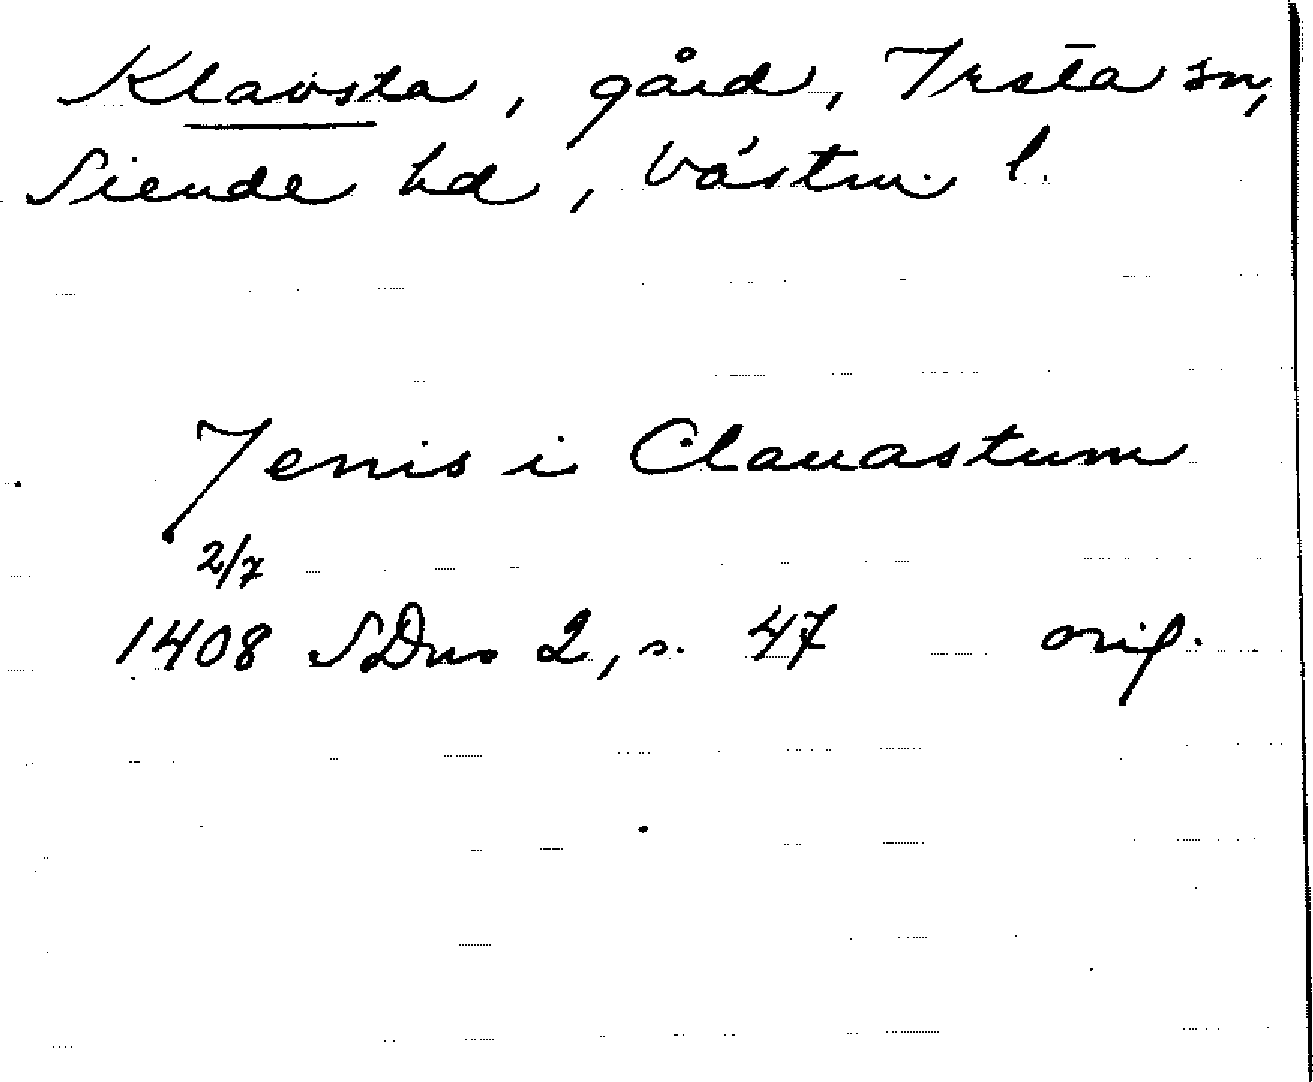 Klavsta, gård, Irsta sn,
Siende hd, Västm. l.
Jenis i Clauastum
2/7
1408 SDns 2, s. 47 orig.